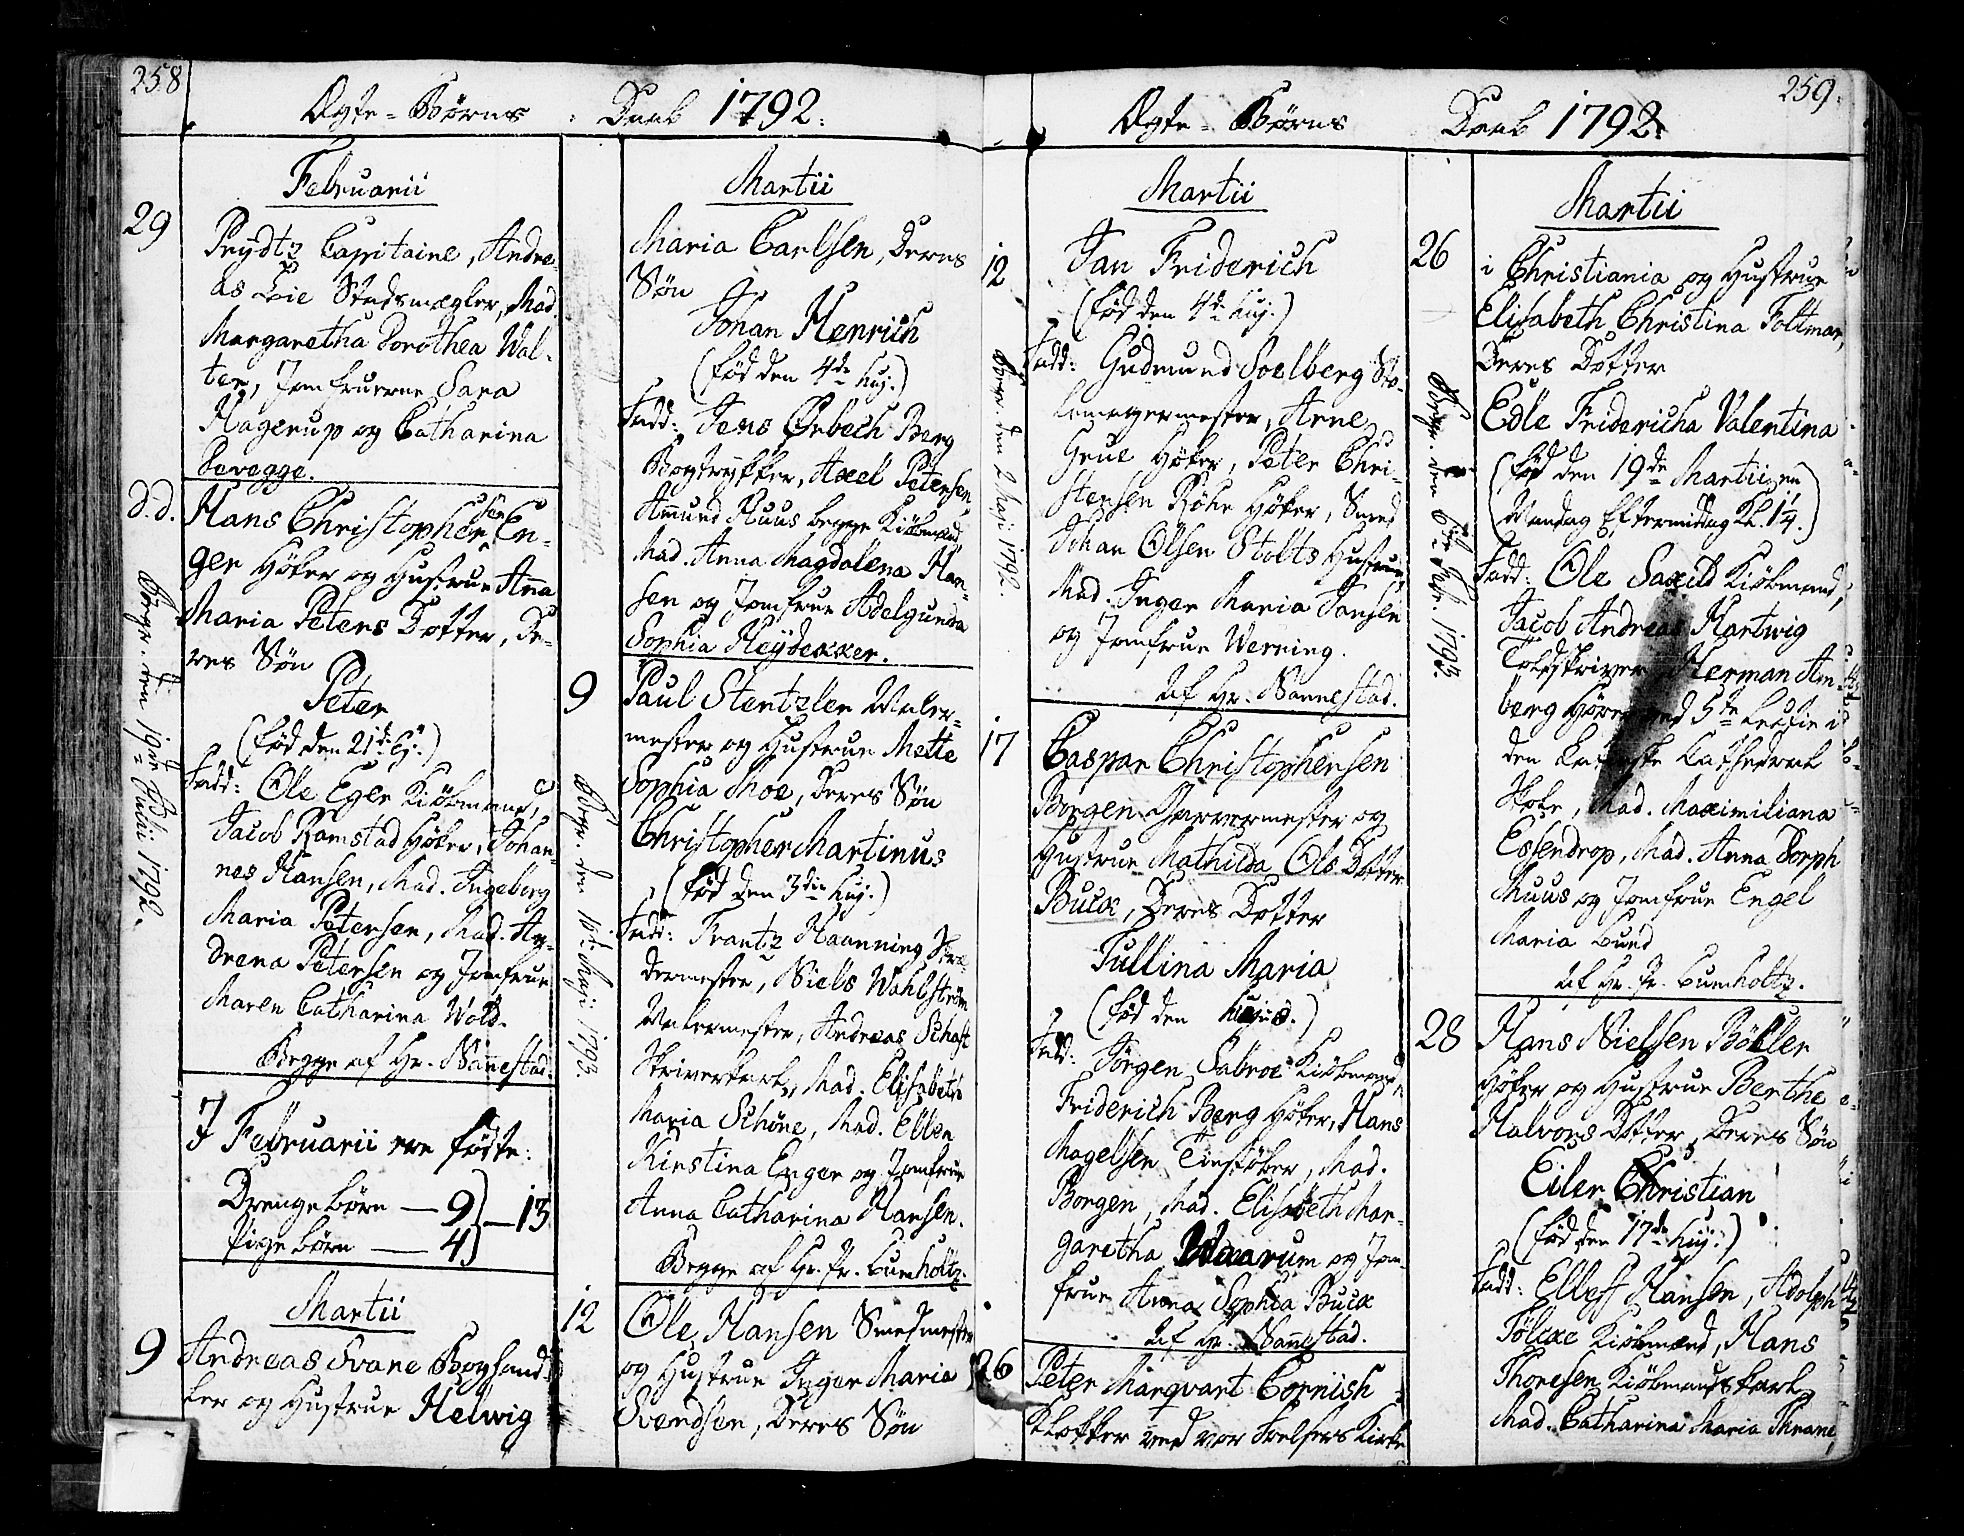 258
Ægte-Børns Daab 1792.
Februarii
29
Prydtz Capitaine, Andre-
as Lie Stadsmægler, Mad.
Margaretha Dorothea Wal-
ter, Jomfruerne Sara
Hagerup og Catharina
Devegge.
d.d.
Hans Christophersen En-
ger Høker og Hustrue Anna
Maria Peters Dotter, De-
res Søn
Peter
(fød den 21de Ej:)
Fadd: Ole Eger Kiøbmand,
Jacob Ramstad Høker, Johan-
nes Hansen, Mad. Ingeborg
Maria Petersen, Mad. An-
drena Petersen og Jomfrue
Maren Catharina Wold.
Begge af Hr. Nannestad.
Begr. den 19de Julii 1792.
I Februarii ere fødte:
Drengebørn — 9
Pigebørn — 4
— 13
Martii
9
Andreas Svane Boghand-
ler og Hustrue Helwig
Martii
Maria Carlsen, Deres
Søn
Johan Henrich
(fød den 4de huj.)
Fadd: Jens Ørbech Berg
Bogtrykker, Axel Petersen,
Amund Huus begge Kiøbmænd,
Mad. Anna Magdalena Han-
sen og Jomfrue Adelgunda
Sophia Heydekker.
9
Paul Stentzler Maler-
mester og Hustrue Mette
Sophia Moe, Deres Søn
Christopher Martinus
(fød den 3die huj.)
Fadd: Frantz Haanning Skræ-
dermester, Niels Wahlstrøm
Malermester, Andreas Schaft
Skriverkarl, Mad. Elisabeth
Maria Schöne, Mad. Ellen
Kirstina Enger og Jomfrue
Anna Catharina Hansen.
Begge af Hr. Pr. Lumholtz.
Begr. den 16de Maji 1793.
12
Ole Hansen Smedmester
og Hustrue Inger Maria
Svendsen, Deres Søn
259.
Ægte-Børns Daab 1792.
Martii
12
Jan Friderich
(fød den 4de huj.)
Fadd: Gudmund Solberg Sto-
lemagermester, Arne
Grue Høker, Peter Chri-
stensen Röhr Høker, Smed
Johan Olsen Stolts Hustrue,
Mad. Inger Maria Jansen
og Jomfrue Werning.
Af Hr. Nannestad.
Begr. den 2 Maji 1792.
17
Caspar Christophersen
Borgen Garvermester og
Hustrue Mathilda Ols Dotter
Buck, Deres Dotter
Jullina Maria
(fød den hujus.)
Fadd: Jörgen Sabroe Kiøbmand,
Friderich Berg Høker, Hans
Magelsen Tinstøber, Mad.
Borgen, Mad. Elisabeth Mar-
garetha Waarum og Jom-
frue Anna Sophia Buck
Af Hr. Nannestad.
26
Peter Marqvart Cornish
Klokker ved vor Frelsers Kirke
Martii
26
i Christiania og Hustrue
Elisabeth Christina Foltmar,
Deres Dotter
Edle Fridericha Valentina
(fød den 19de Martii en
Mandag Eftermiddag Kl. 1 1/4.)
Fadd: Ole Saxild Kiøbmand,
Jacob Andreas Hartwig
Toldskriver, Herman Am-
berg Hører ved 5te Lectie i
den Cathedral
Skole, Mad. Maximiliana
Essendrop, Mad. Anna Dorph
Muus og Jomfrue Engel
Maria Lund
Af Hr. Pr. Lumholtz.
Begr. den 6te Febr. 1793.
28
Hans Nielsen Böhler
Høker og Hustrue Berthe
Halvors Dotter, Deres Søn
Eiler Christian
(fød den 17de huj.)
Fadd: Ellef Hansen, Adolph
Fölixe Kiøbmænd, Hans
Thoresen Kiøbmandskarl,
Mad. Catharina Maria Thrane,